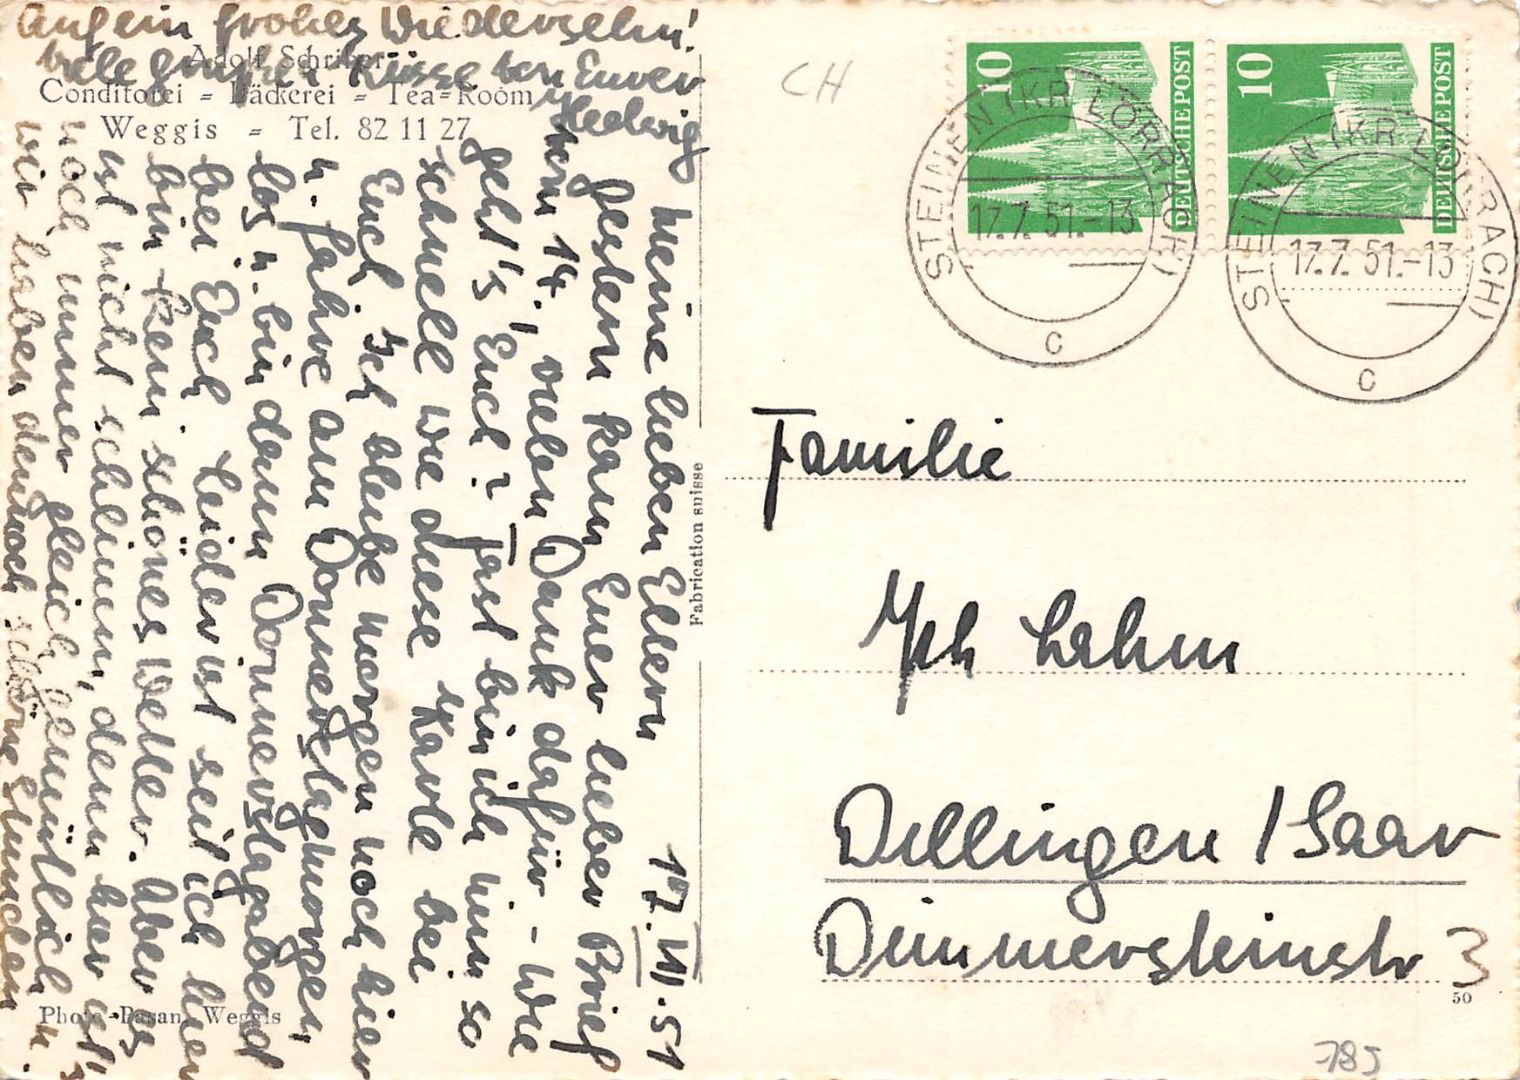 Adolf Schriber
Conditorei = Bäckerei = Tea=Room
Weggis = Tel. 82 11 27
17.VII.51
Meine lieben Eltern
gestern kam Euer lieber Brief
vom 14., vielen Dank dafür - Wie
geht's Euch? Fast bin ich nun so
schnell wie diese Karte bei
Euch. Ich bleibe morgen noch hier
u. fahre am Donnerstagmorgen
los u. bin dann Donnerstagabend
bei Euch. Leider ist seit ich hier
bin kein schönes Wetter. Aber es
ist nicht schlimm, denn hier ist's
noch immer gleich gemütlich u.
wir haben dennoch schöne Stunden.
Auf ein frohes Wiedersehn!
Viele Grüße u. Küsse von Eurer
Hedwig
Photo-Pagan, Weggis
Fabrication suisse
CH
10
DEUTSCHE POST
10
DEUTSCHE POST
STEINEN (KR LÖRRACH)
17.7.51.-13
c
STEINEN (KR LÖRRACH)
17.7.51.-13
c
Familie
Lahm
Dillingen / Saar
Dimmersteinstr 3
50
785